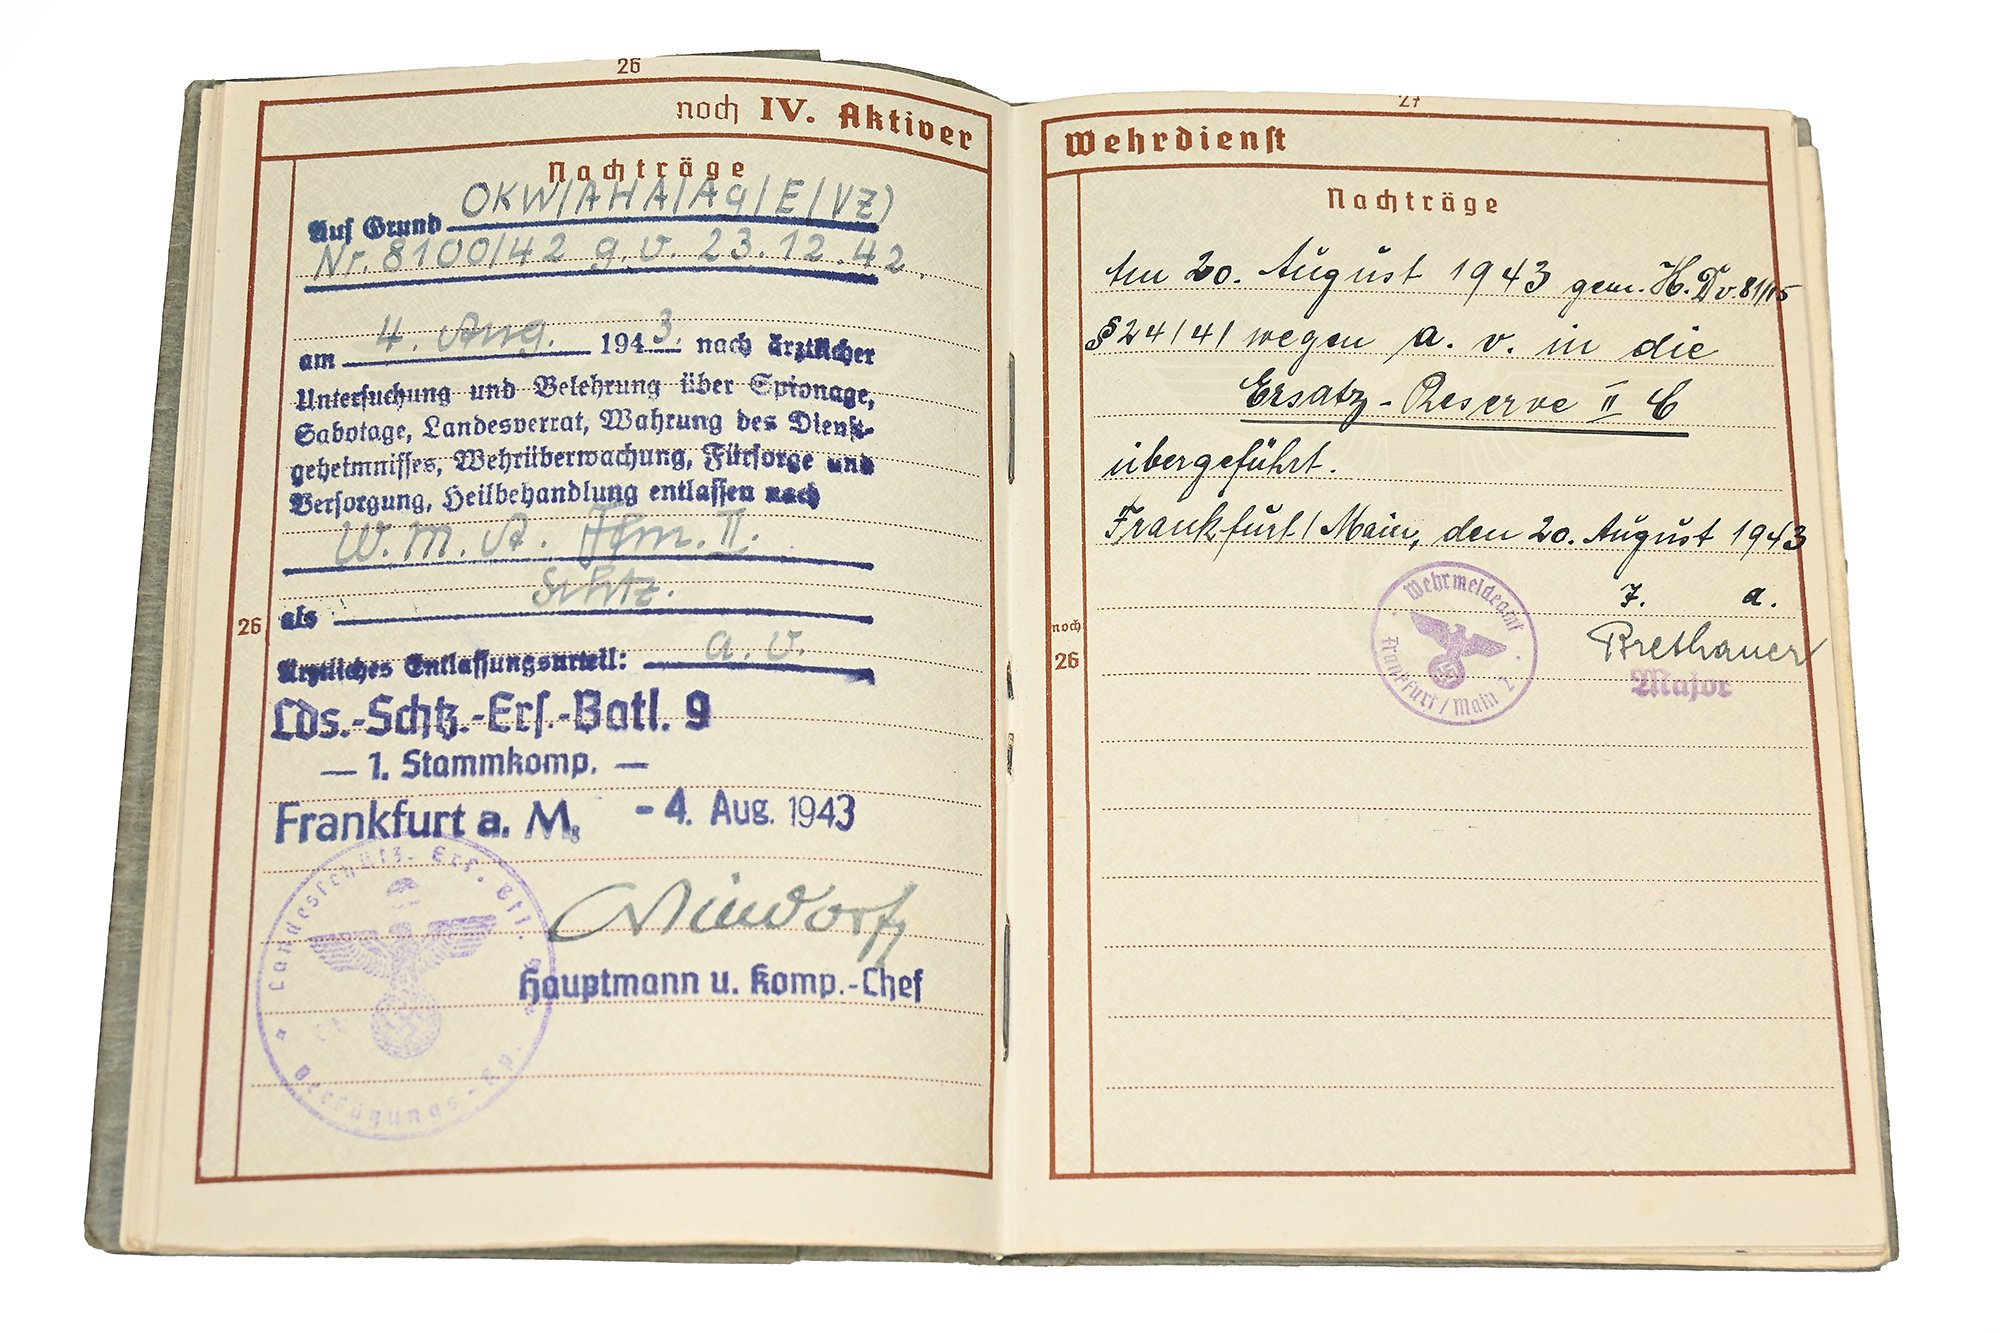 26
noch IV. Aktiver
Nachträge
Auf Grund OKW/AHA/Ag/E/(Vz)
Nr. 8100/42 g. v. 23.12.42.
am 4. Aug. 1943. nach ärztlicher
Untersuchung und Belehrung über Spionage,
Sabotage, Landesverrat, Wahrung des Dienst-
geheimnisses, Wehrüberwachung, Fürsorge und
Versorgung, Heilbehandlung entlassen nach
W. M. A. Ffm. II.
als Schtz.
26
Ärztliches Entlassungsurteil: a. v.
Lds.-Schtz.-Ers.-Batl. 9
— 1. Stammkomp. —
Frankfurt a. M. - 4. Aug. 1943
Hauptmann u. Komp.-Chef
Landesschütz. Ers. Btl.
27
Wehrdienst
Nachträge
Am 20. August 1943 gem. H. Dv. 81/15
§ 24/4/ wegen a. v. in die
Ersatz-Reserve II C
übergeführt.
Frankfurt/Main, den 20. August 1943
J. a.
Brethauer
Major
noch
26
Wehrmeldeamt
Frankfurt/Main 2